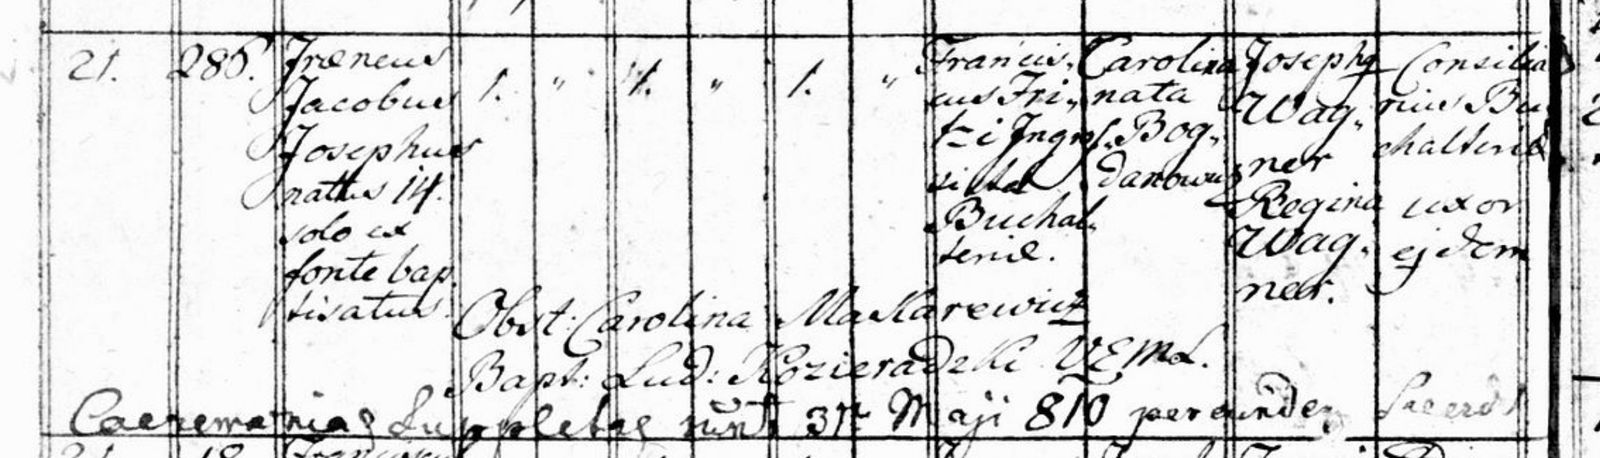 21. 286. Jreneus
Jacobus
Josephus
natus 14.
solo ex
fonte bap
tisatus.
1. " 1. " 1. "
Francis,
cus Fri,
Buchal,
teriæ.
Carolina
nata
Bog,
danowicz
Joseph9
Wag,
ner
Regina
Wag,
ner.
Consilia
rius Bu
chalteriæ
uxor
ejdem
Obst: Carolina Makarewicz
Bapt: Lud: Kozieradzki VEML.
Caeremonias Suppletas sunt 31 Maji 810 per eunde,